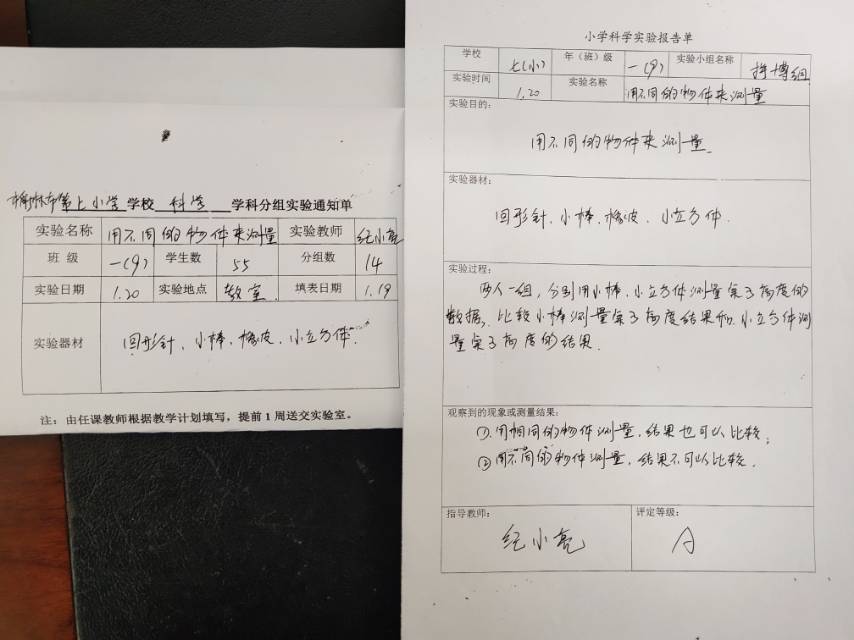 榆林市第七小学学校 科学 学科分组实验通知单
实验名称 用不同的物件来测量 实验教师 纪小亮
班 级 一(9) 学生数 55 分组数 14
实验日期 1.20 实验地点 教室 填表日期 1.19
实验器材 回形针、小棒、橡皮、小立方体.
注：由任课教师根据教学计划填写，提前1周送交实验室。
小学科学实验报告单
学校 七(小) 年（班）级 一(9) 实验小组名称 博组
实验时间 1.20 实验名称 用不同的物件来测量
实验目的：
用不同的物件来测量.
实验器材：
回形针、小棒、橡皮、小立方体.
实验过程：
两人一组，分别用小棒、小立方体测量桌子高度的
数据，比较小棒测量桌子高度结果和小立方体测
量桌子高度的结果.
观察到的现象或测量结果：
①.用相同的物件测量，结果也可以比较；
②用不同的物件测量，结果不可以比较.
指导教师： 评定等级：
纪小亮 A